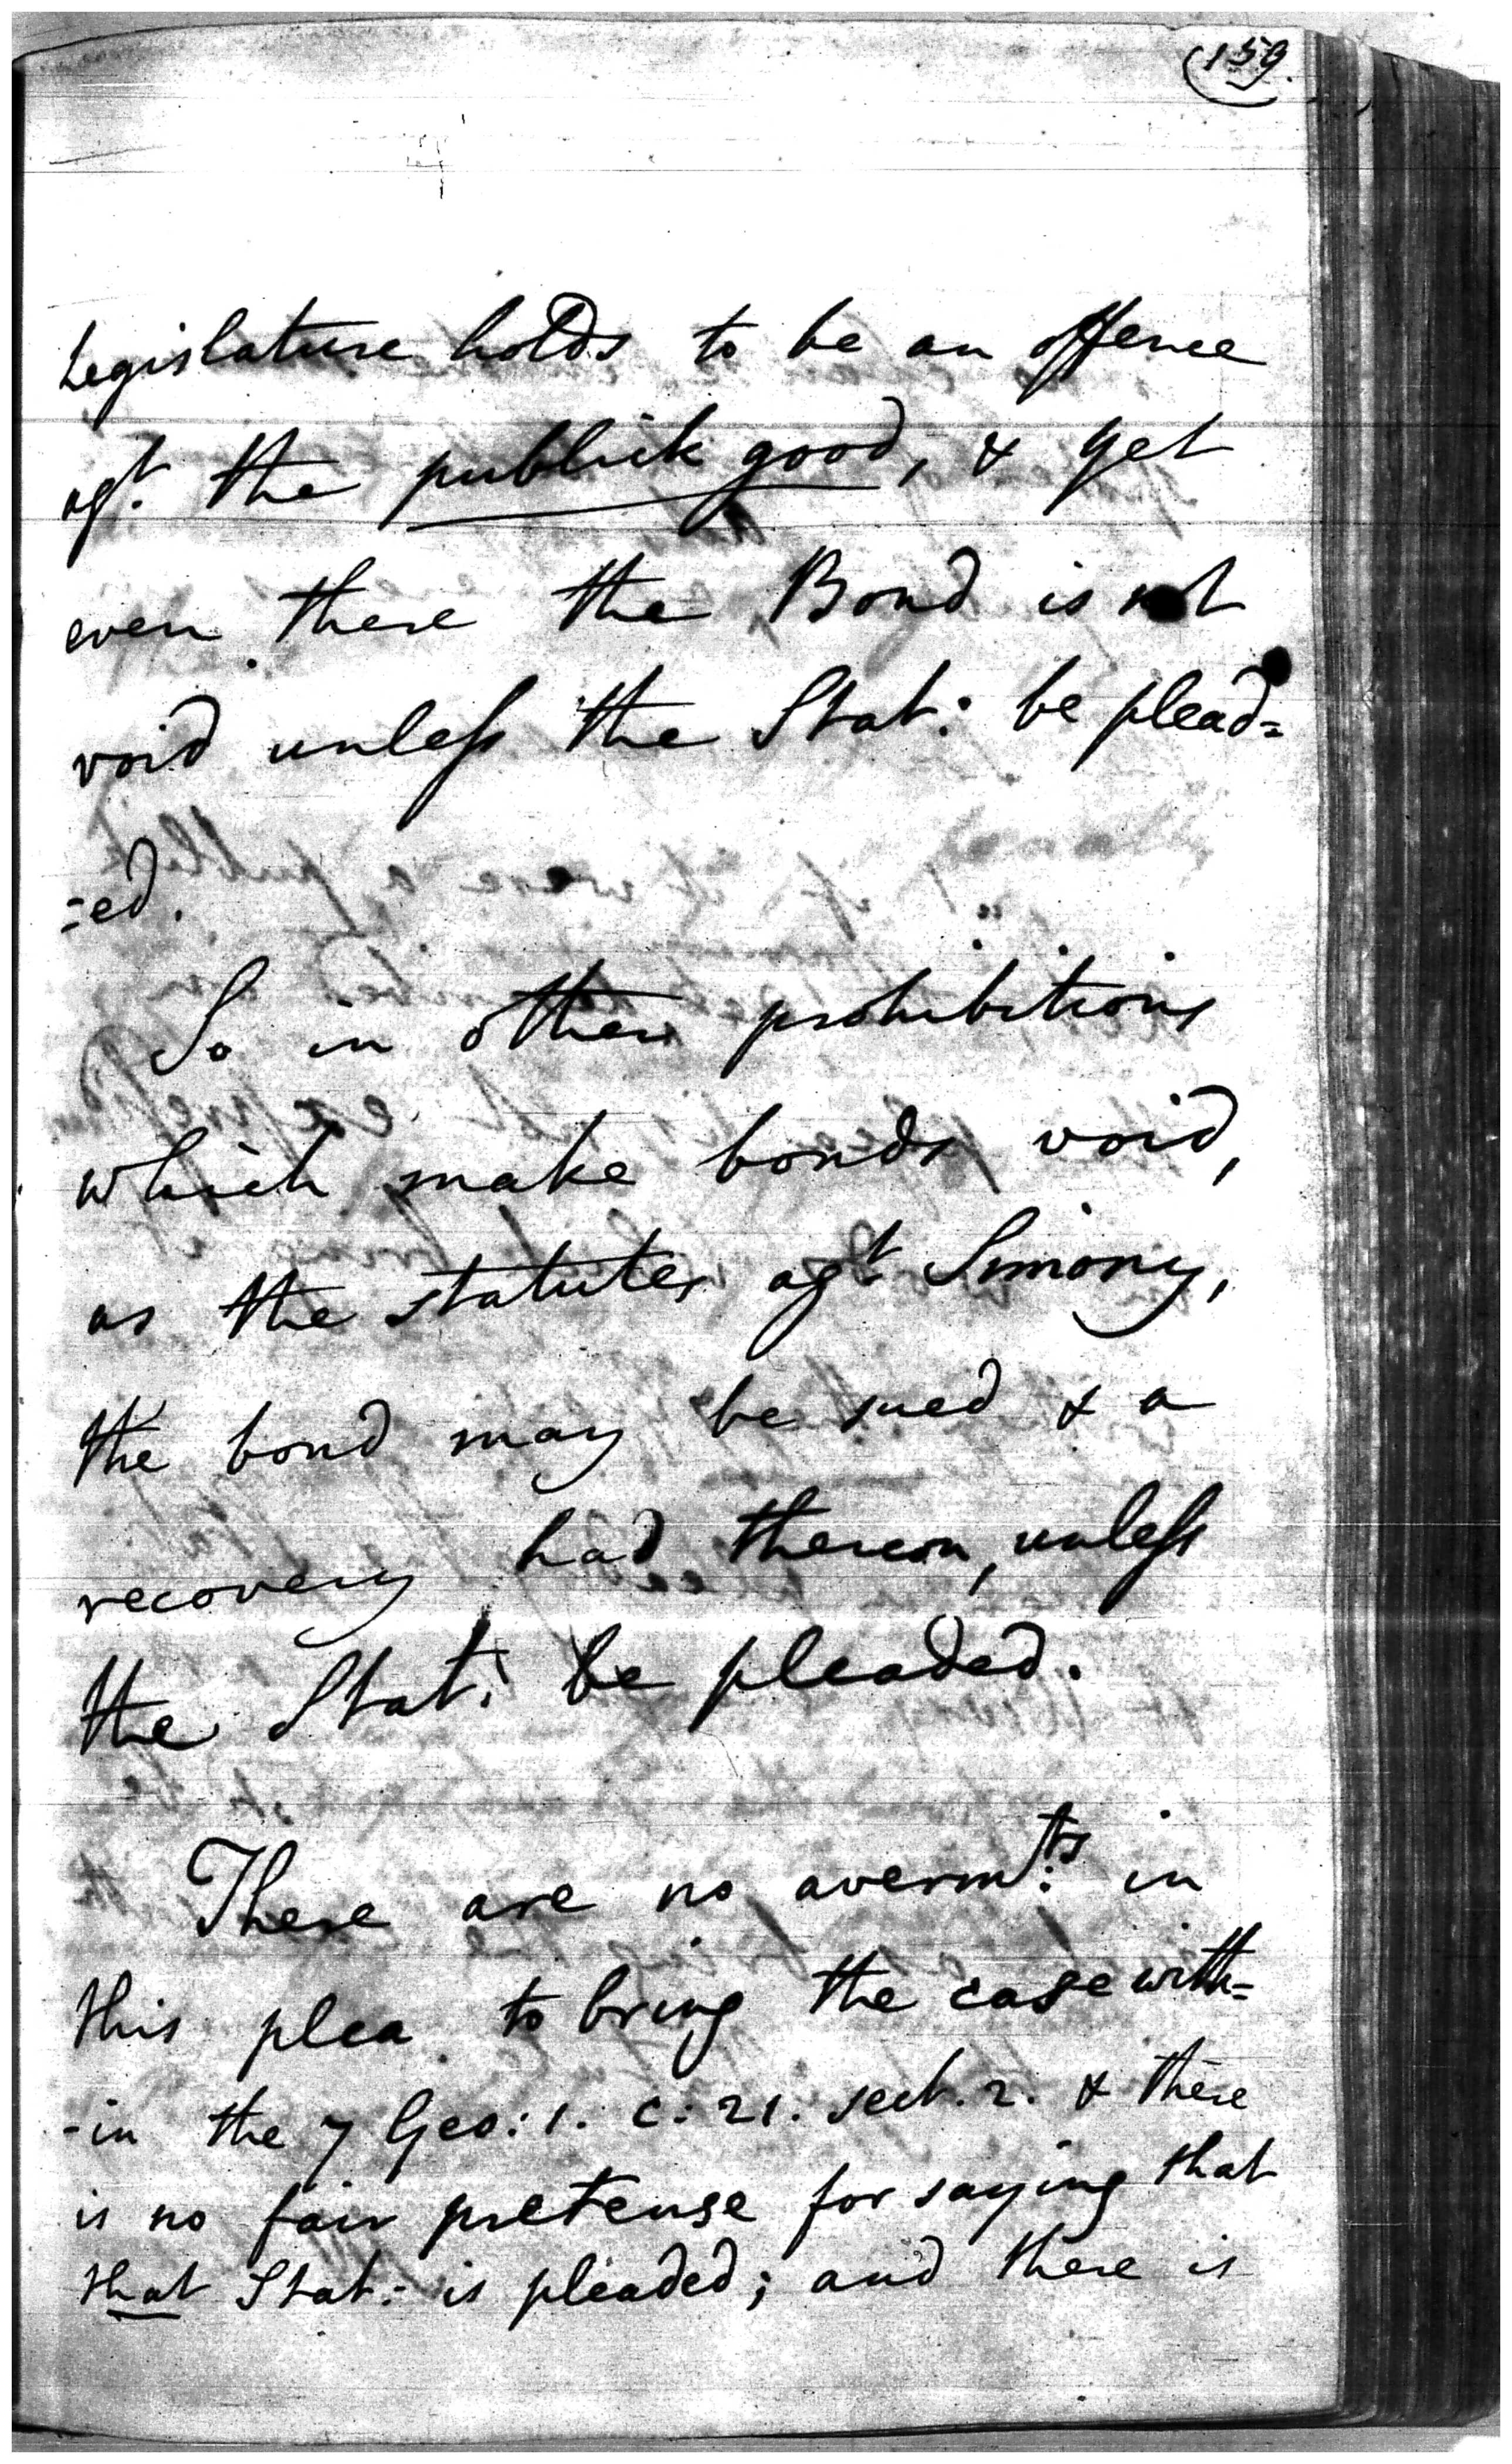 159.
Legislature holds to be an offence
agt. the publick good, & yet
even there the Bond is not
void unless the Stat: be plead=
=ed.
So in other prohibitions
which make bonds void,
as the statutes agt Simony,
the bond may be sued & a
recovery had thereon, unless
the Stat: be pleaded.
There are no averm:ts in
this plea to bring the case with=
-in the 7 Geo: 1. c: 21. sect. 2. & there
is no fair pretense for saying that
that Stat: is pleaded; and there is